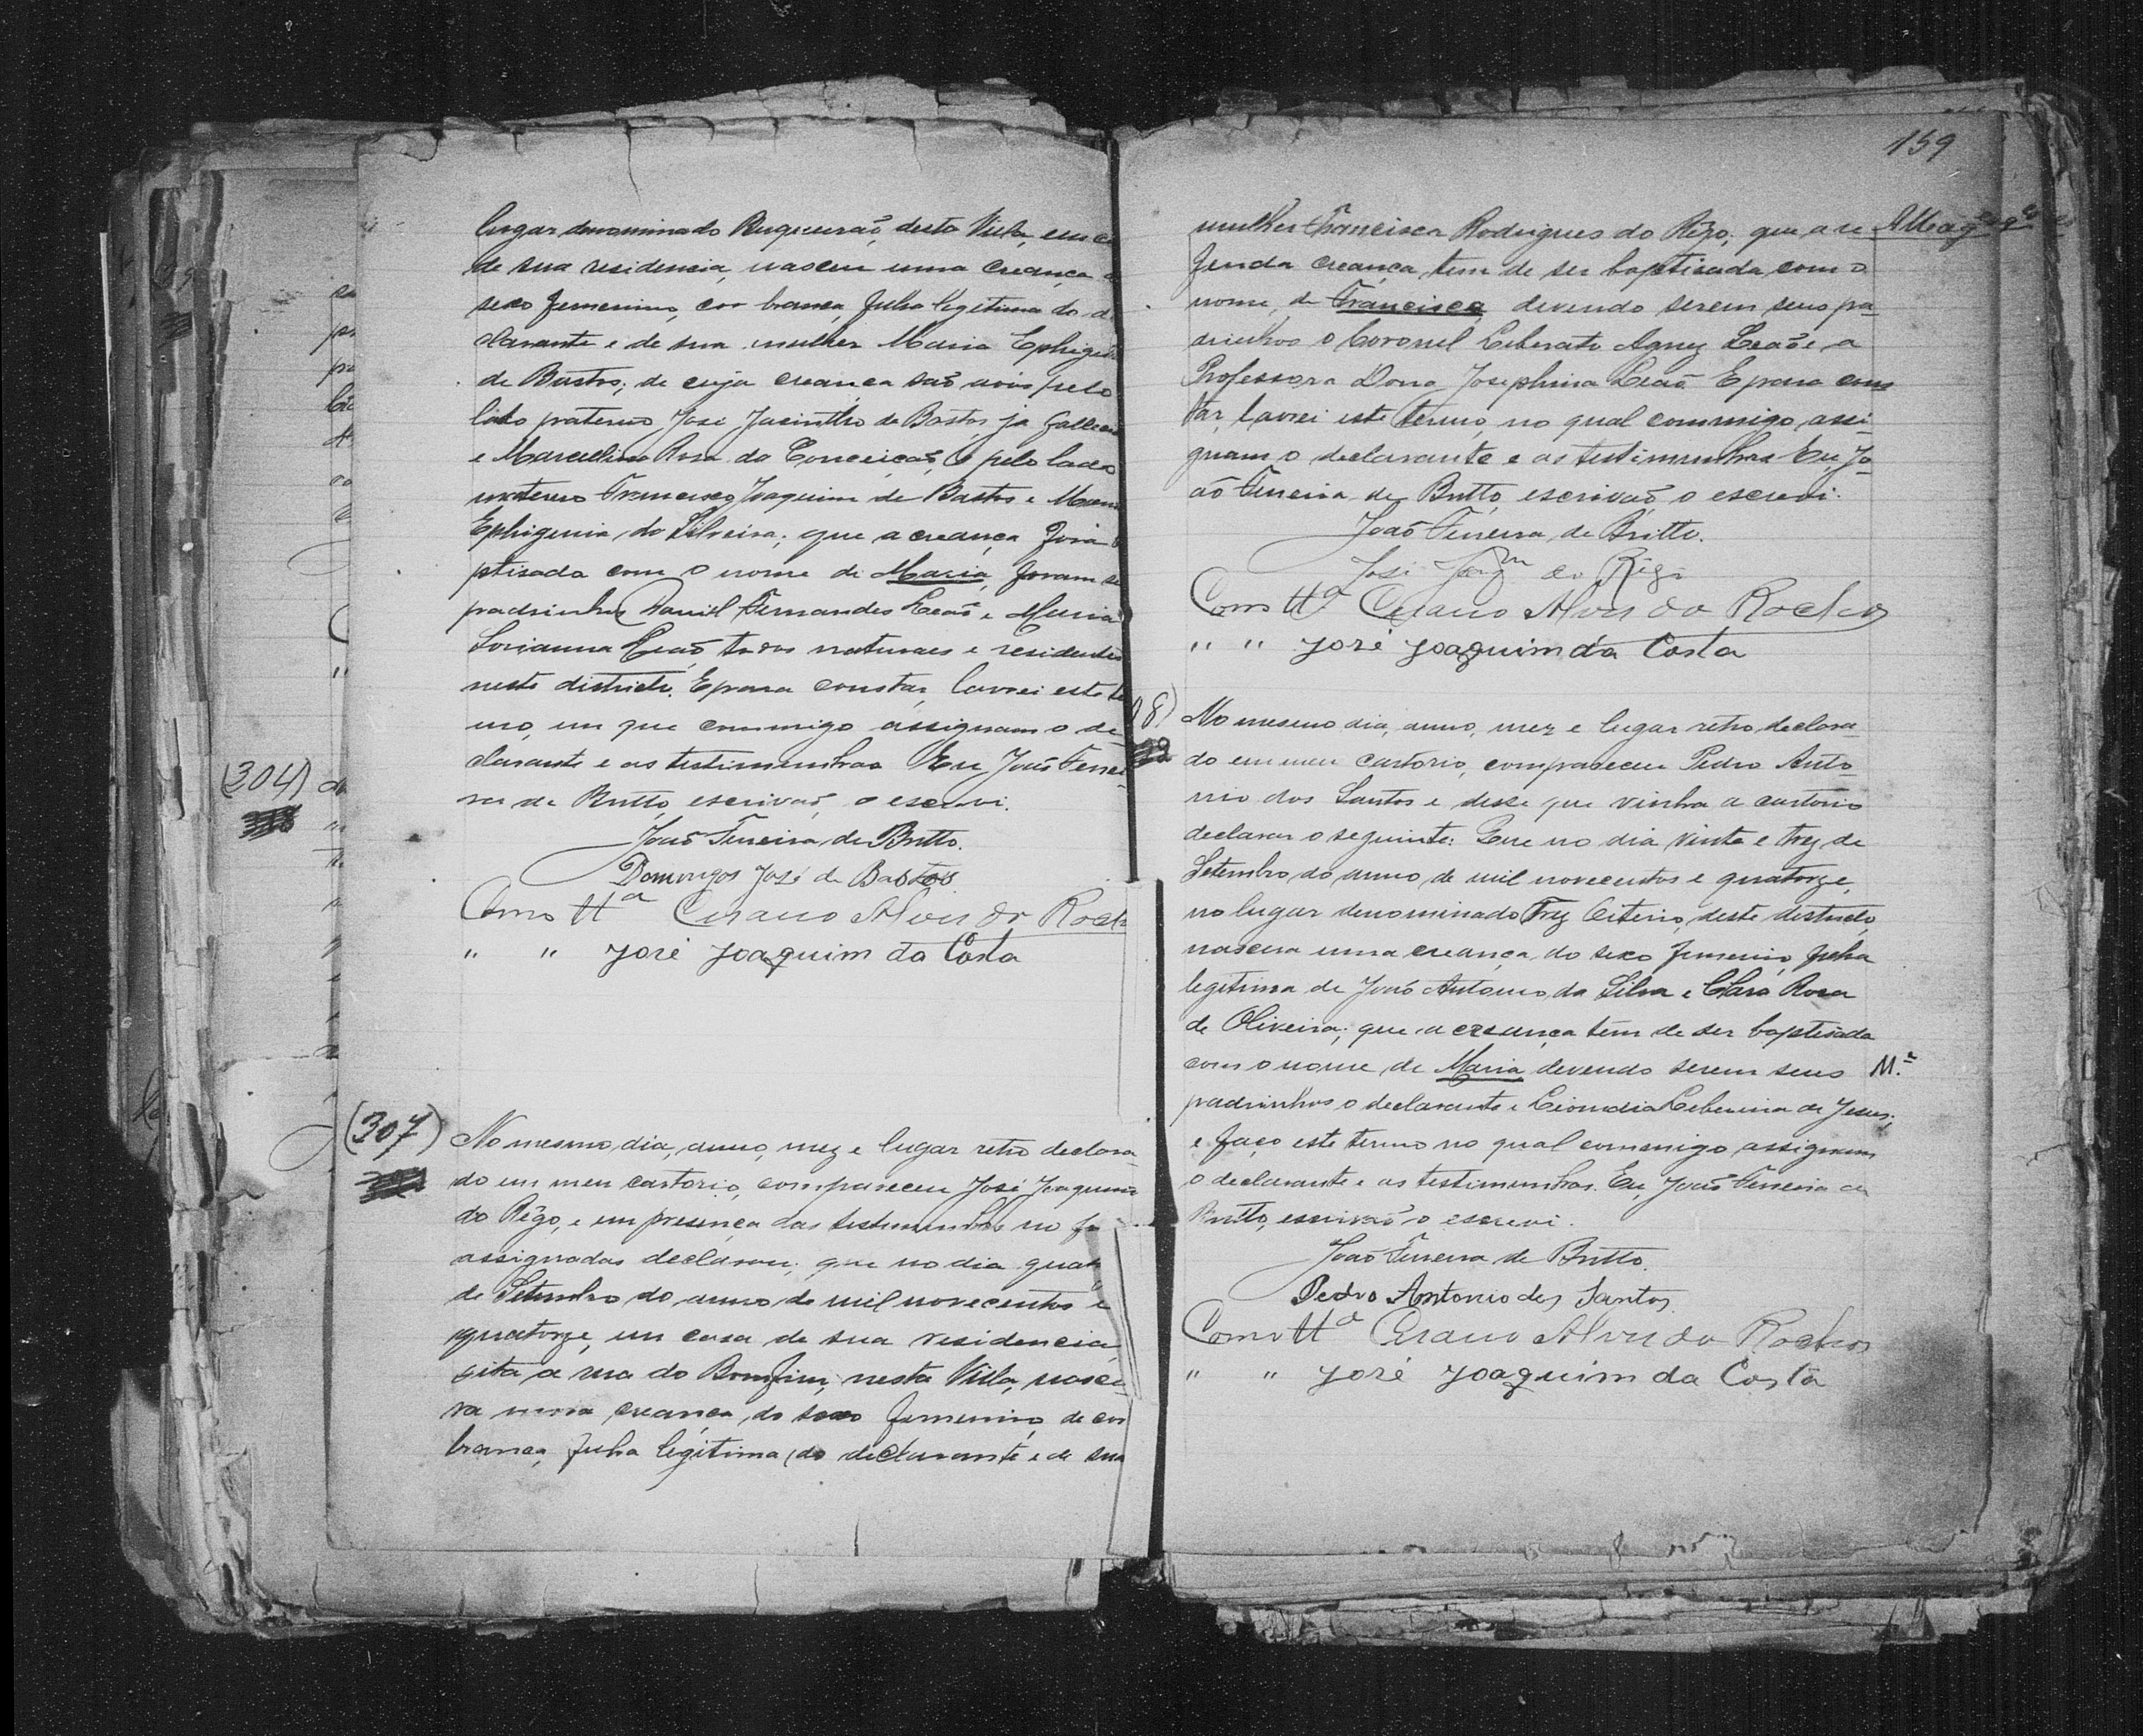 lugar denominado Buqueirão, desta Villa, em
de sua residencia, nasceu uma creança
sexo femenino, cor branca, filha legitima do de
clarante e de sua mulher Maria Ephige
de Bastos; de cuja creança são avós pelo
lado paterno José Jacintho de Bastos já falleci
e Marcellina Rosa da Conceicaõ, e pelo lado
materno Francisco Joaquim de Bastos e Maria
Ephigenia da Silveira; que a creança fora
ptisada com o nome de Maria, foram se
padrinhos Daniel Fernandes Leaõ e Maria
Leaõ, todos naturaes e residentes
neste districto. E para constar, lavrei este te
mo, em que commigo assignam o de
clarante e as testimunhas. Eu, Joaõ Ferrei
ra de Britto, escrivaõ, o escrevi.
Joaõ Ferreira de Britto.
Domingos José de Bastos.
Como tta Alves da Roch
" " José Joaquim da Costa
(304)
(307) No mesmo dia, anno, mez e lugar retro declara-
do em meu cartorio, compareceu José Joaquim
do Rêgo, e em presença das testimunhas no f
assignadas declarou; que no dia quat
de Setembro do anno de mil novecentos e
quatorze, em casa de sua residencia
sita a rua do Bomfim, nesta Villa, nasce-
ra uma creança, do sexo femenino, de cor
branca, filha legitima do declarante e de sua
159
mulher Francisca Rodrigues do Rêgo; que a re-
ferida creança, tem de ser baptisada com o
nome, de Francisca, devendo serem seus pa-
drinhos o Coronel Liberato Leaõ e a
Professora Dona Josephina Leaõ. E para cons
tar, lavrei este termo, no qual commigo, assi-
gnam o declarante e as testimunhas. Eu, Jo-
aõ Ferreira de Britto, escrivaõ o escrevi.
Joaõ Ferreira de Britto.
José do Rêgo
Como tta Alves da Rocha
" " José Joaquim da Costa
8) No mesmo dia, anno, mez e lugar retro declara-
do em meu cartorio, compareceu Pedro Anto-
nio dos Santos e disse que vinha a cartorio
declarar o seguinte: Que no dia vinte e trez de
Setembro do anno de mil novecentos e quatorze,
no lugar denominado Trez, deste districto,
nascera uma creança, do sexo femenino, filha
legitima de Joaõ Antonio da Silva e Clara Rosa
de Oliveira; que a creança tem de ser baptisada
com o nome de Maria devendo serem seus Mª
padrinhos o declarante e de Jesus;
e faço este termo no qual commigo assignam
o declarante e as testimunhas. Eu, Joaõ Ferreira de
Britto, escrivaõ o escrevi.
Joaõ Ferreira de Britto.
Pedro Antonio dos Santos.
Como tta Alves da Rocha
" " José Joaquim da Costa